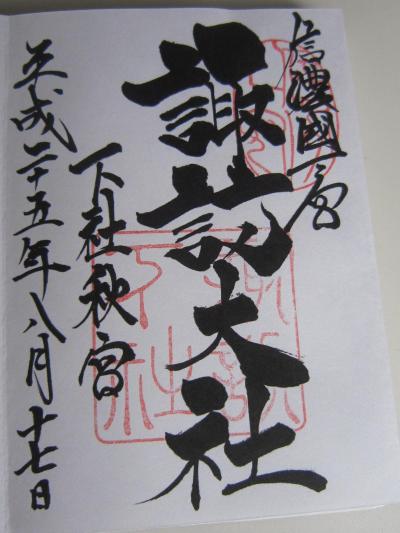 信濃國一宮
諏訪大社
下社秋宮
平成二十五年八月十七日